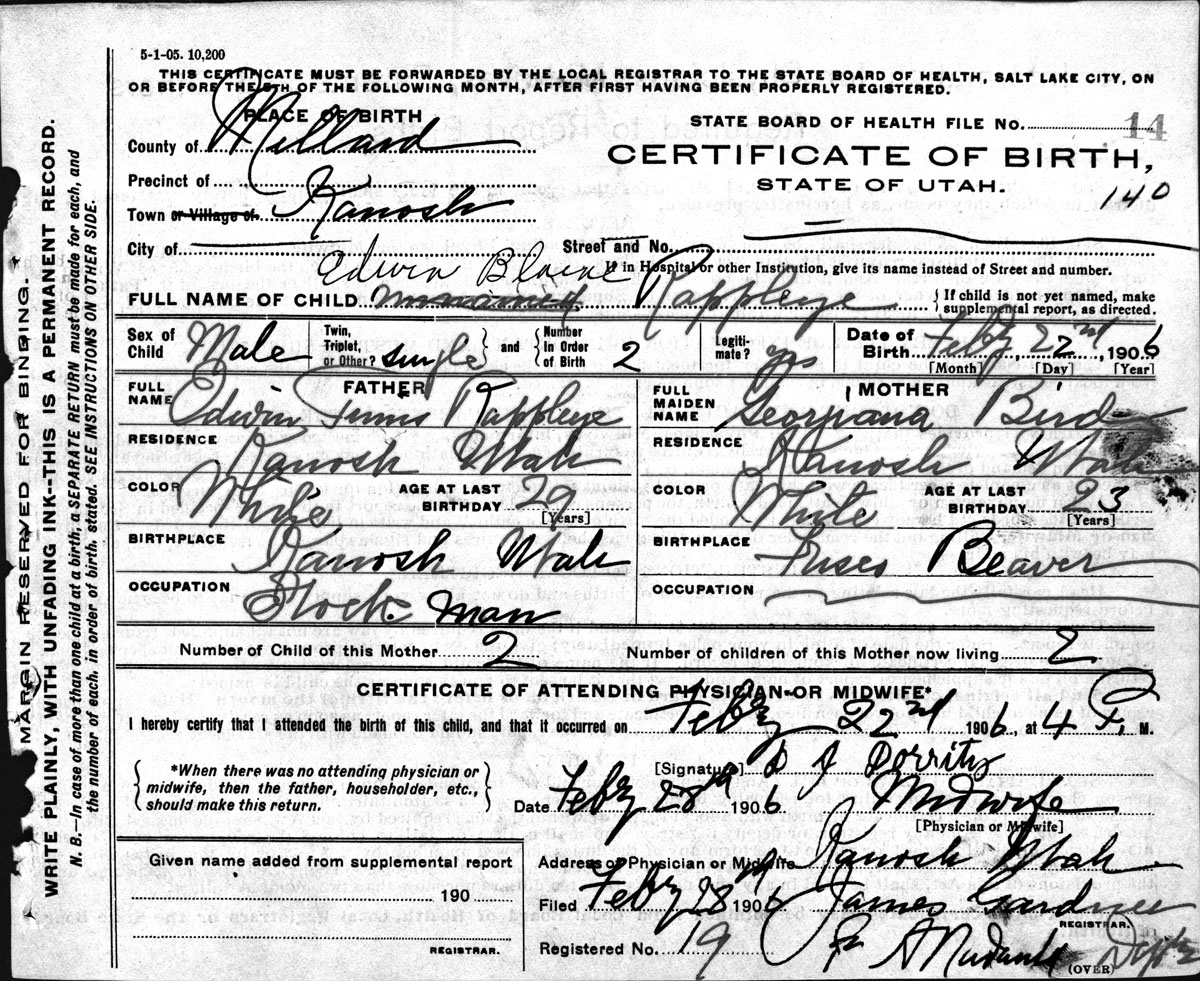 5-1-05. 10,200
THIS CERTIFICATE MUST BE FORWARDED BY THE LOCAL REGISTRAR TO THE STATE BOARD OF HEALTH, SALT LAKE CITY, ON
OR BEFORE THE 5TH OF THE FOLLOWING MONTH, AFTER FIRST HAVING BEEN PROPERLY REGISTERED.
PLACE OF BIRTH
County of Millard
Precinct of
Town or Village of Kanosh
City of
STATE BOARD OF HEALTH FILE No. 14
CERTIFICATE OF BIRTH,
STATE OF UTAH.
140
Street and No.
If in Hospital or other Institution, give its name instead of Street and number.
Edwin Blaine
FULL NAME OF CHILD unnamed Rappleye
If child is not yet named, make
supplemental report, as directed.
Sex of Child Male
Twin, Triplet, or Other? single and Number In Order of Birth 2
Legitimate? yes
Date of Birth Feby 22nd, 1906
[Month] [Day] [Year]
FATHER
FULL NAME Edwin Rappleye
RESIDENCE Kanosh Utah
COLOR White AGE AT LAST BIRTHDAY 29
[Years]
BIRTHPLACE Kanosh Utah
OCCUPATION Stock man
MOTHER
FULL MAIDEN NAME Georgiana Bird
RESIDENCE Kanosh Utah
COLOR White AGE AT LAST BIRTHDAY 23
[Years]
BIRTHPLACE Beaver
OCCUPATION
Number of Child of this Mother 2 Number of children of this Mother now living 2
CERTIFICATE OF ATTENDING PHYSICIAN OR MIDWIFE*
I hereby certify that I attended the birth of this child, and that it occurred on Feby 22nd 1906, at 4 P. M.
*When there was no attending physician or
midwife, then the father, householder, etc.,
should make this return.
[Signature] D J Dorrity
Date Feby 28th 1906 Midwife
[Physician or Midwife]
Given name added from supplemental report
190
REGISTRAR.
Address of Physician or Midwife Kanosh Utah
Filed Feby 28th 1906 James Gardner
REGISTRAR.
Registered No. 19
(OVER)
MARGIN RESERVED FOR BINDING.
WRITE PLAINLY, WITH UNFADING INK--THIS IS A PERMANENT RECORD.
N. B.—In case of more than one child at a birth, a SEPARATE RETURN must be made for each, and
the number of each, in order of birth, stated. SEE INSTRUCTIONS ON OTHER SIDE.